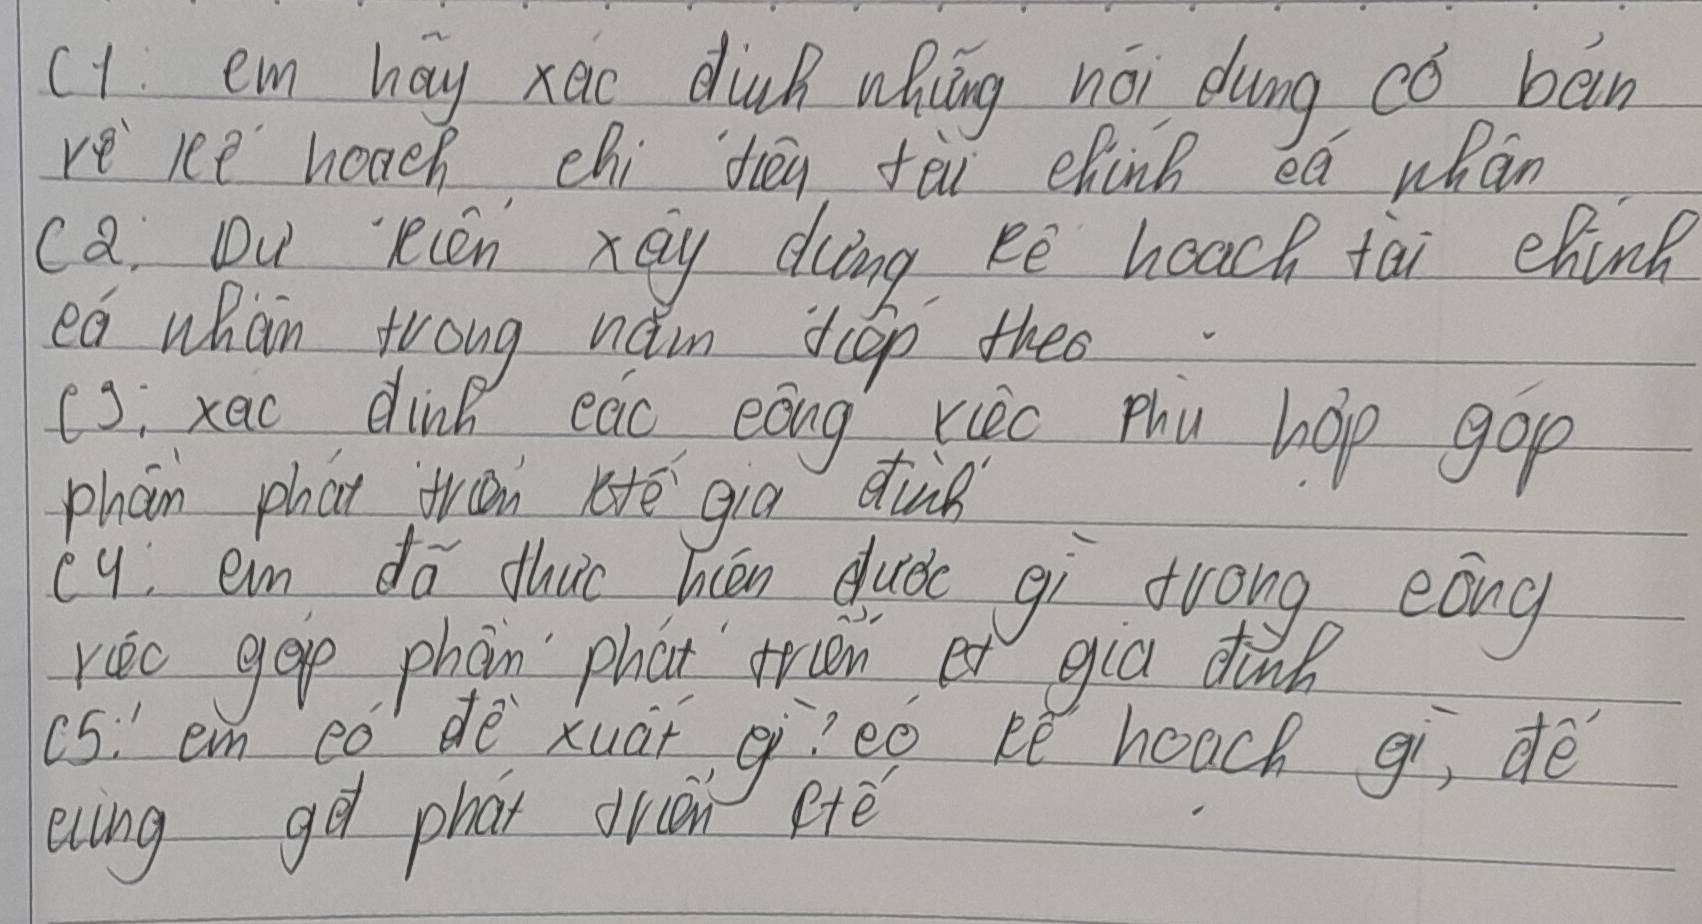 C1: em hãy xác định những nội dung cơ bản
về kế hoạch chi tiêu tài chính cá nhân
C2: Dự kiến xây dựng kế hoạch tài chính
cá nhân trong năm tiếp theo.
C3: xác định các công việc phù hợp góp
phần phát triển ktế gia đình
C4: em đã thực hiện được gì trong công
việc góp phần phát triển kt gia đình
C5: em có đề xuất gì? có kế hoạch gì, để
cùng gđ phát triển ktế